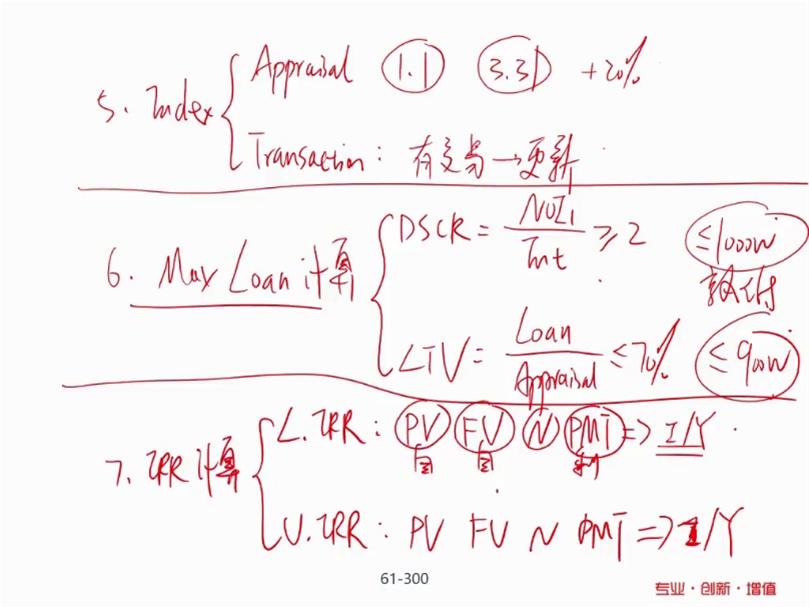 5. Index
Appraisal 1.1 3.3D +20%
Transaction: 有交易→更新
6. Max Loan 计算
DSCR = NOI1 / Int ≥ 2 ≤1000W
LTV = Loan / Appraisal ≤ 70% ≤900W
7. IRR 计算
L.IRR: PV FV N PMT => I/Y
U.IRR: PV FV N PMT => I/Y
61-300
专业·创新·增值